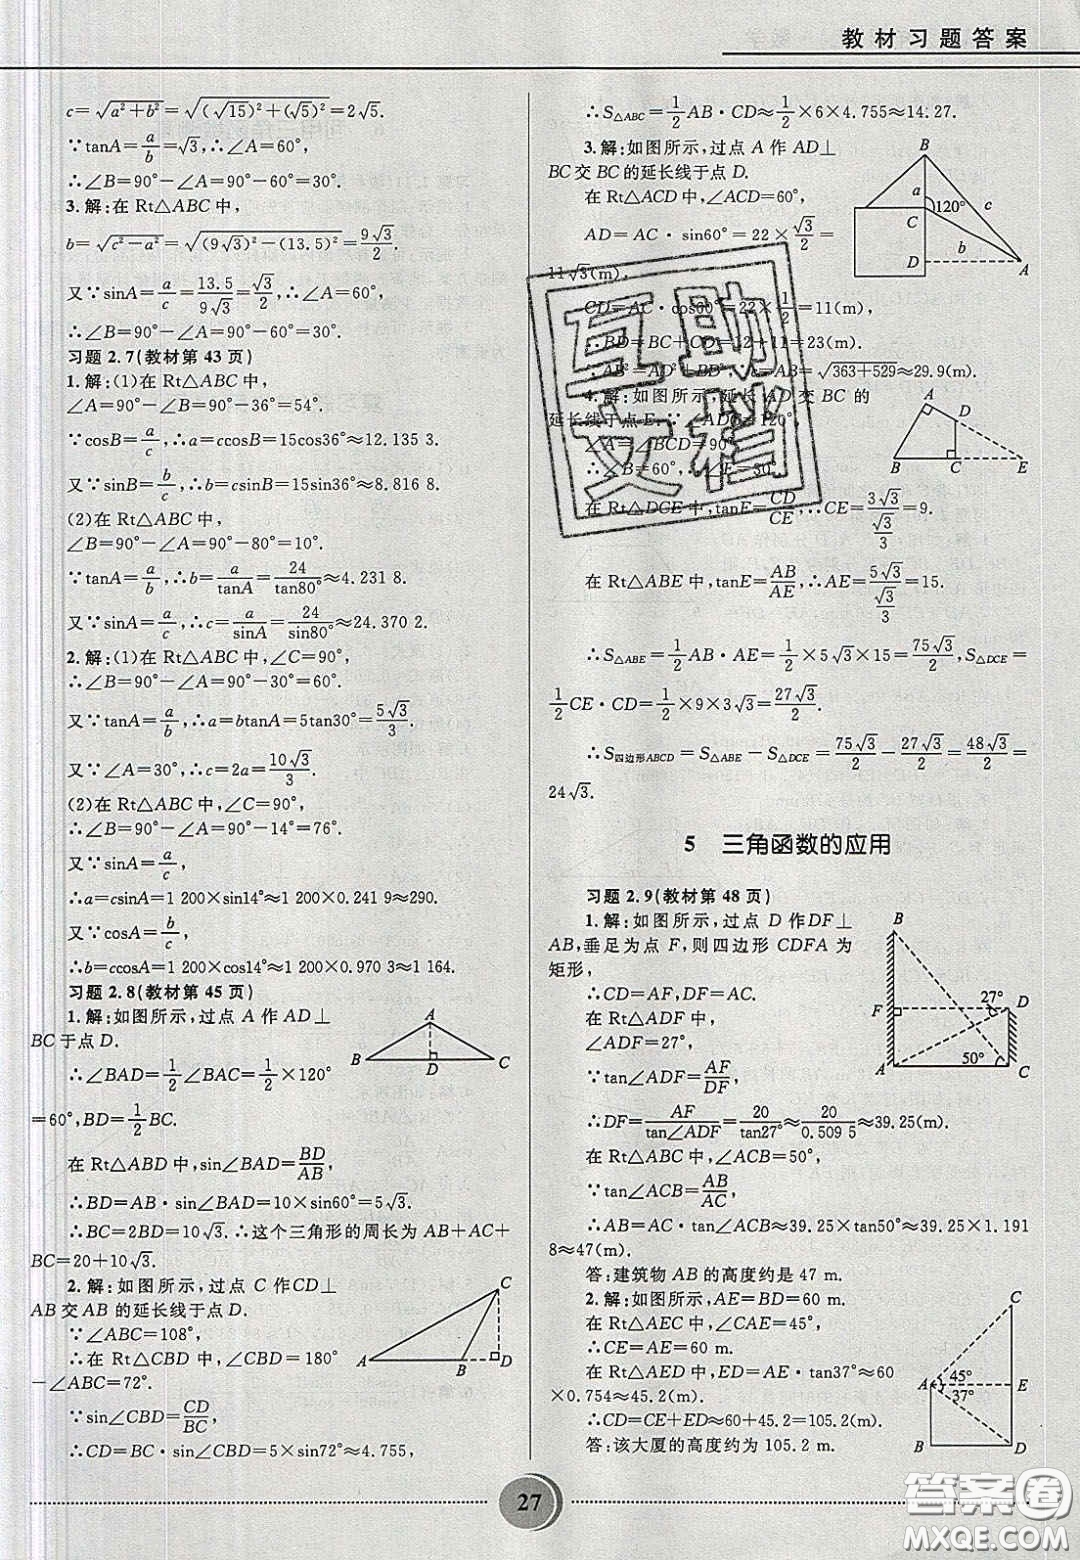 教材习题答案
c=√(a²+b²)=√((√15)²+(√5)²)=2√5.
∵tanA=a/b=√3,∴∠A=60°,
∴∠B=90°-∠A=90°-60°=30°.
3.解:在 Rt△ABC 中,
b=√(c²-a²)=√((9√3)²-(13.5)²)=9√3/2.
又∵sinA=a/c=13.5/9√3=√3/2,∴∠A=60°,
∴∠B=90°-∠A=90°-60°=30°.
习题 2.7(教材第 43 页)
1.解:(1)在 Rt△ABC 中,
∠A=90°-∠B=90°-36°=54°.
∵cosB=a/c,∴a=ccosB=15cos36°≈12.135 3.
又∵sinB=b/c,∴b=csinB=15sin36°≈8.816 8.
(2)在 Rt△ABC 中,
∠B=90°-∠A=90°-80°=10°.
∵tanA=a/b,∴b=a/tanA=24/tan80°≈4.231 8.
又∵sinA=a/c,∴c=a/sinA=24/sin80°≈24.370 2.
2.解:(1)在 Rt△ABC 中,∠C=90°,
∴∠B=90°-∠A=90°-30°=60°.
又∵tanA=a/b,∴a=btanA=5tan30°=5√3/3.
又∵∠A=30°,∴c=2a=10√3/3.
(2)在 Rt△ABC 中,∠C=90°,
∴∠B=90°-∠A=90°-14°=76°.
又∵sinA=a/c,
∴a=csinA=1 200×sin14°≈1 200×0.241 9≈290.
又∵cosA=b/c,
∴b=ccosA=1 200×cos14°≈1 200×0.970 3≈1 164.
习题 2.8(教材第 45 页)
1.解:如图所示,过点 A 作 AD⊥
BC 于点 D.
∴∠BAD=1/2∠BAC=1/2×120°
=60°,BD=1/2BC.
A
B
D
C
在 Rt△ABD 中,sin∠BAD=BD/AB,
∴BD=AB·sin∠BAD=10×sin60°=5√3.
∴BC=2BD=10√3.∴这个三角形的周长为 AB+AC+
BC=20+10√3.
2.解:如图所示,过点 C 作CD⊥
AB 交 AB 的延长线于点 D.
∵∠ABC=108°,
∴在 Rt△CBD 中,∠CBD=180°
-∠ABC=72°.
C
A
B
D
∵sin∠CBD=CD/BC,
∴CD=BC·sin∠CBD=5×sin72°≈4.755,
∴S△ABC=1/2AB·CD≈1/2×6×4.755≈14.27.
3.解:如图所示,过点 A 作 AD⊥
BC 交 BC 的延长线于点 D.
在 Rt△ACD 中,∠ACD=60°,
AD=AC·sin60°=22×√3/2=
11√3(m),
CD=AC·cos60°=22×1/2=11(m),
∴BD=BC+CD=12+11=23(m).
∴AB²=AD²+BD²,∴c=AB=√(363+529)≈29.9(m).
B
a
120°
c
C
b
D
A
4.解:如图所示,延长 AD 交 BC 的
延长线于点 E.∵∠ADC=120°,
∠A=∠BCD=90°,
∴∠B=60°,∠E=30°.
A
D
B
C
E
在 Rt△DCE 中,tanE=CD/CE,∴CE=3√3/(√3/3)=9.
在 Rt△ABE 中,tanE=AB/AE,∴AE=5√3/(√3/3)=15.
∴S△ABE=1/2AB·AE=1/2×5√3×15=75√3/2,S△DCE=
1/2CE·CD=1/2×9×3√3=27√3/2.
∴S四边形ABCD=S△ABE-S△DCE=75√3/2-27√3/2=48√3/2=
24√3.
5 三角函数的应用
习题 2.9(教材第 48 页)
1.解:如图所示,过点 D 作DF⊥
AB,垂足为点 F,则四边形 CDFA 为
矩形,
∴CD=AF,DF=AC.
在 Rt△ADF 中,
∠ADF=27°,
∵tan∠ADF=AF/DF,
B
F
27°
D
50°
A
C
∴DF=AF/tan∠ADF=20/tan27°≈20/0.509 5≈39.25(m).
在 Rt△ABC 中,∠ACB=50°,
∵tan∠ACB=AB/AC,
∴AB=AC·tan∠ACB≈39.25×tan50°≈39.25×1.191
8≈47(m).
答:建筑物 AB 的高度约是 47 m.
2.解:如图所示,AE=BD=60 m.
在 Rt△AEC 中,∠CAE=45°,
∴CE=AE=60 m.
在 Rt△AED 中,ED=AE·tan37°≈60
×0.754≈45.2(m).
∴CD=CE+ED≈60+45.2=105.2(m).
答:该大厦的高度约为 105.2 m.
C
A
45°
37°
E
B
D
27
互助文档
答案圈
MXQE.COM